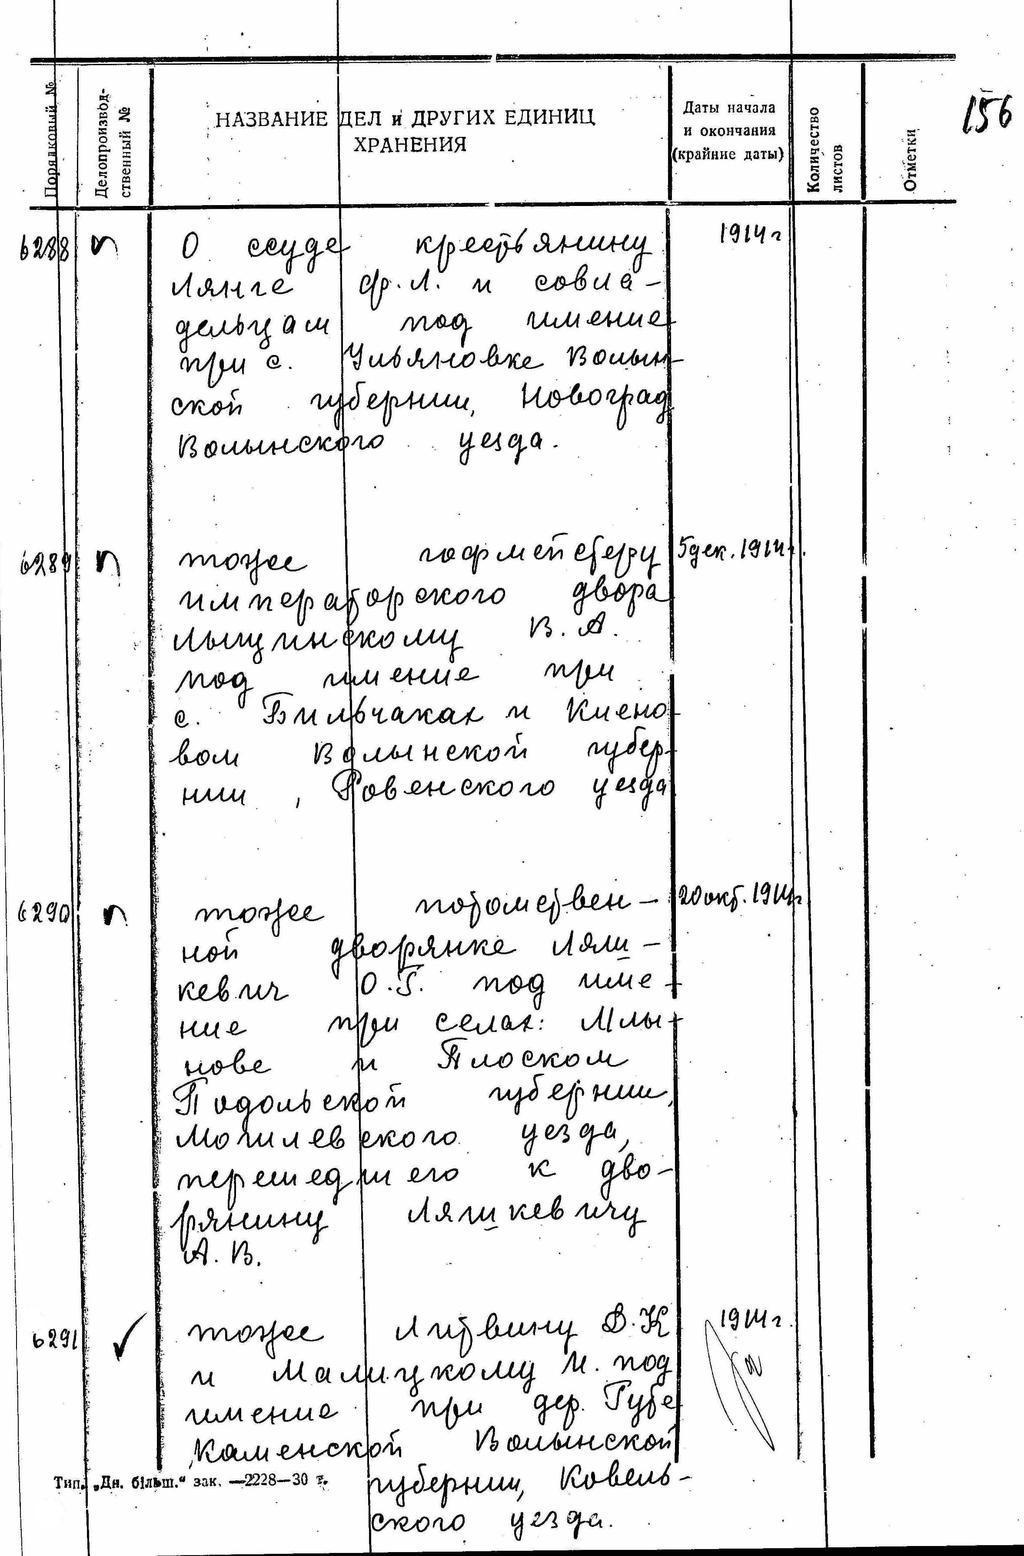 156
Порядковый №
Делопроизвод-
ственный №
НАЗВАНИЕ ДЕЛ и ДРУГИХ ЕДИНИЦ
ХРАНЕНИЯ
Даты начала
и окончания
(крайние даты)
Количество
листов
Отметки
6288 п О ссуде крестьянину 1914 г
Лянге Ф.Л. и совла-
дельцам под имение
при с. Ульяновке Волын-
ской губернии, Новоград
Волынского уезда.
6289 п тоже гофмейстеру 5 дек. 1914 г.
императорского двора
Лыщинскому В.А.
под имение при
с. Бильчаках и Киено-
вом Волынской губер-
нии, Ровенского уезда
6290 п тоже потомствен- 20 окт. 1914 г.
ной дворянке Ляш-
кевич О.Г. под име-
ние при селах: Млы-
нове и Плоском
Подольской губернии,
Могилевского уезда,
перешедшего к дво-
рянину Ляшкевичу
А.В.
6291 ✓ тоже Литвину В.К 1914 г.
и Малицкому М. под
имение при дер. Губе
Каменской Волынской
губернии, Ковель-
ского уезда.
Тип. „Дн. більш.“ зак. —2228—30 т.